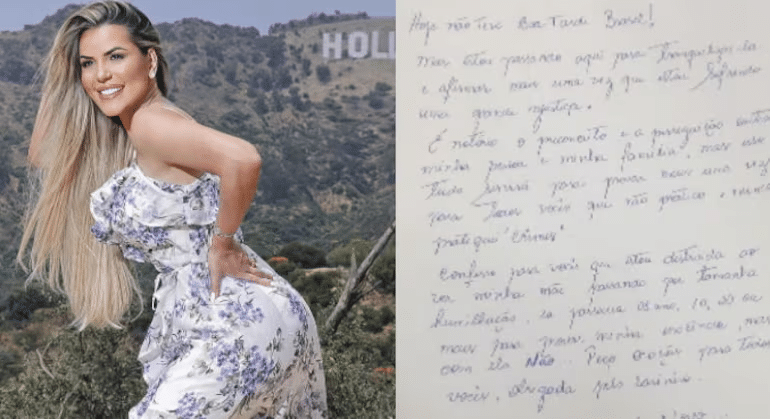 HOLL
Hoje não teve Boa Tarde Brasil!
Mas estou passando aqui para tranquiliza-la
e afirmar mais uma vez que estou sofrendo
uma grande injustiça.
É notório o preconceito e a perseguição contra
minha pessoa e minha família, mas isso
tudo servirá para provar mais uma vez
para todos vocês que não pratico e nunca
pratiquei "Crimes".
Confesso para vocês que estou destruída ao
ver minha mãe passando por tamanha
humilhação, eu passaria 08 ano, 10, 20 ou
mais para provar minha inocência, mas
com ela Não. Peço oração para todos
vocês, obrigada pelo carinho.